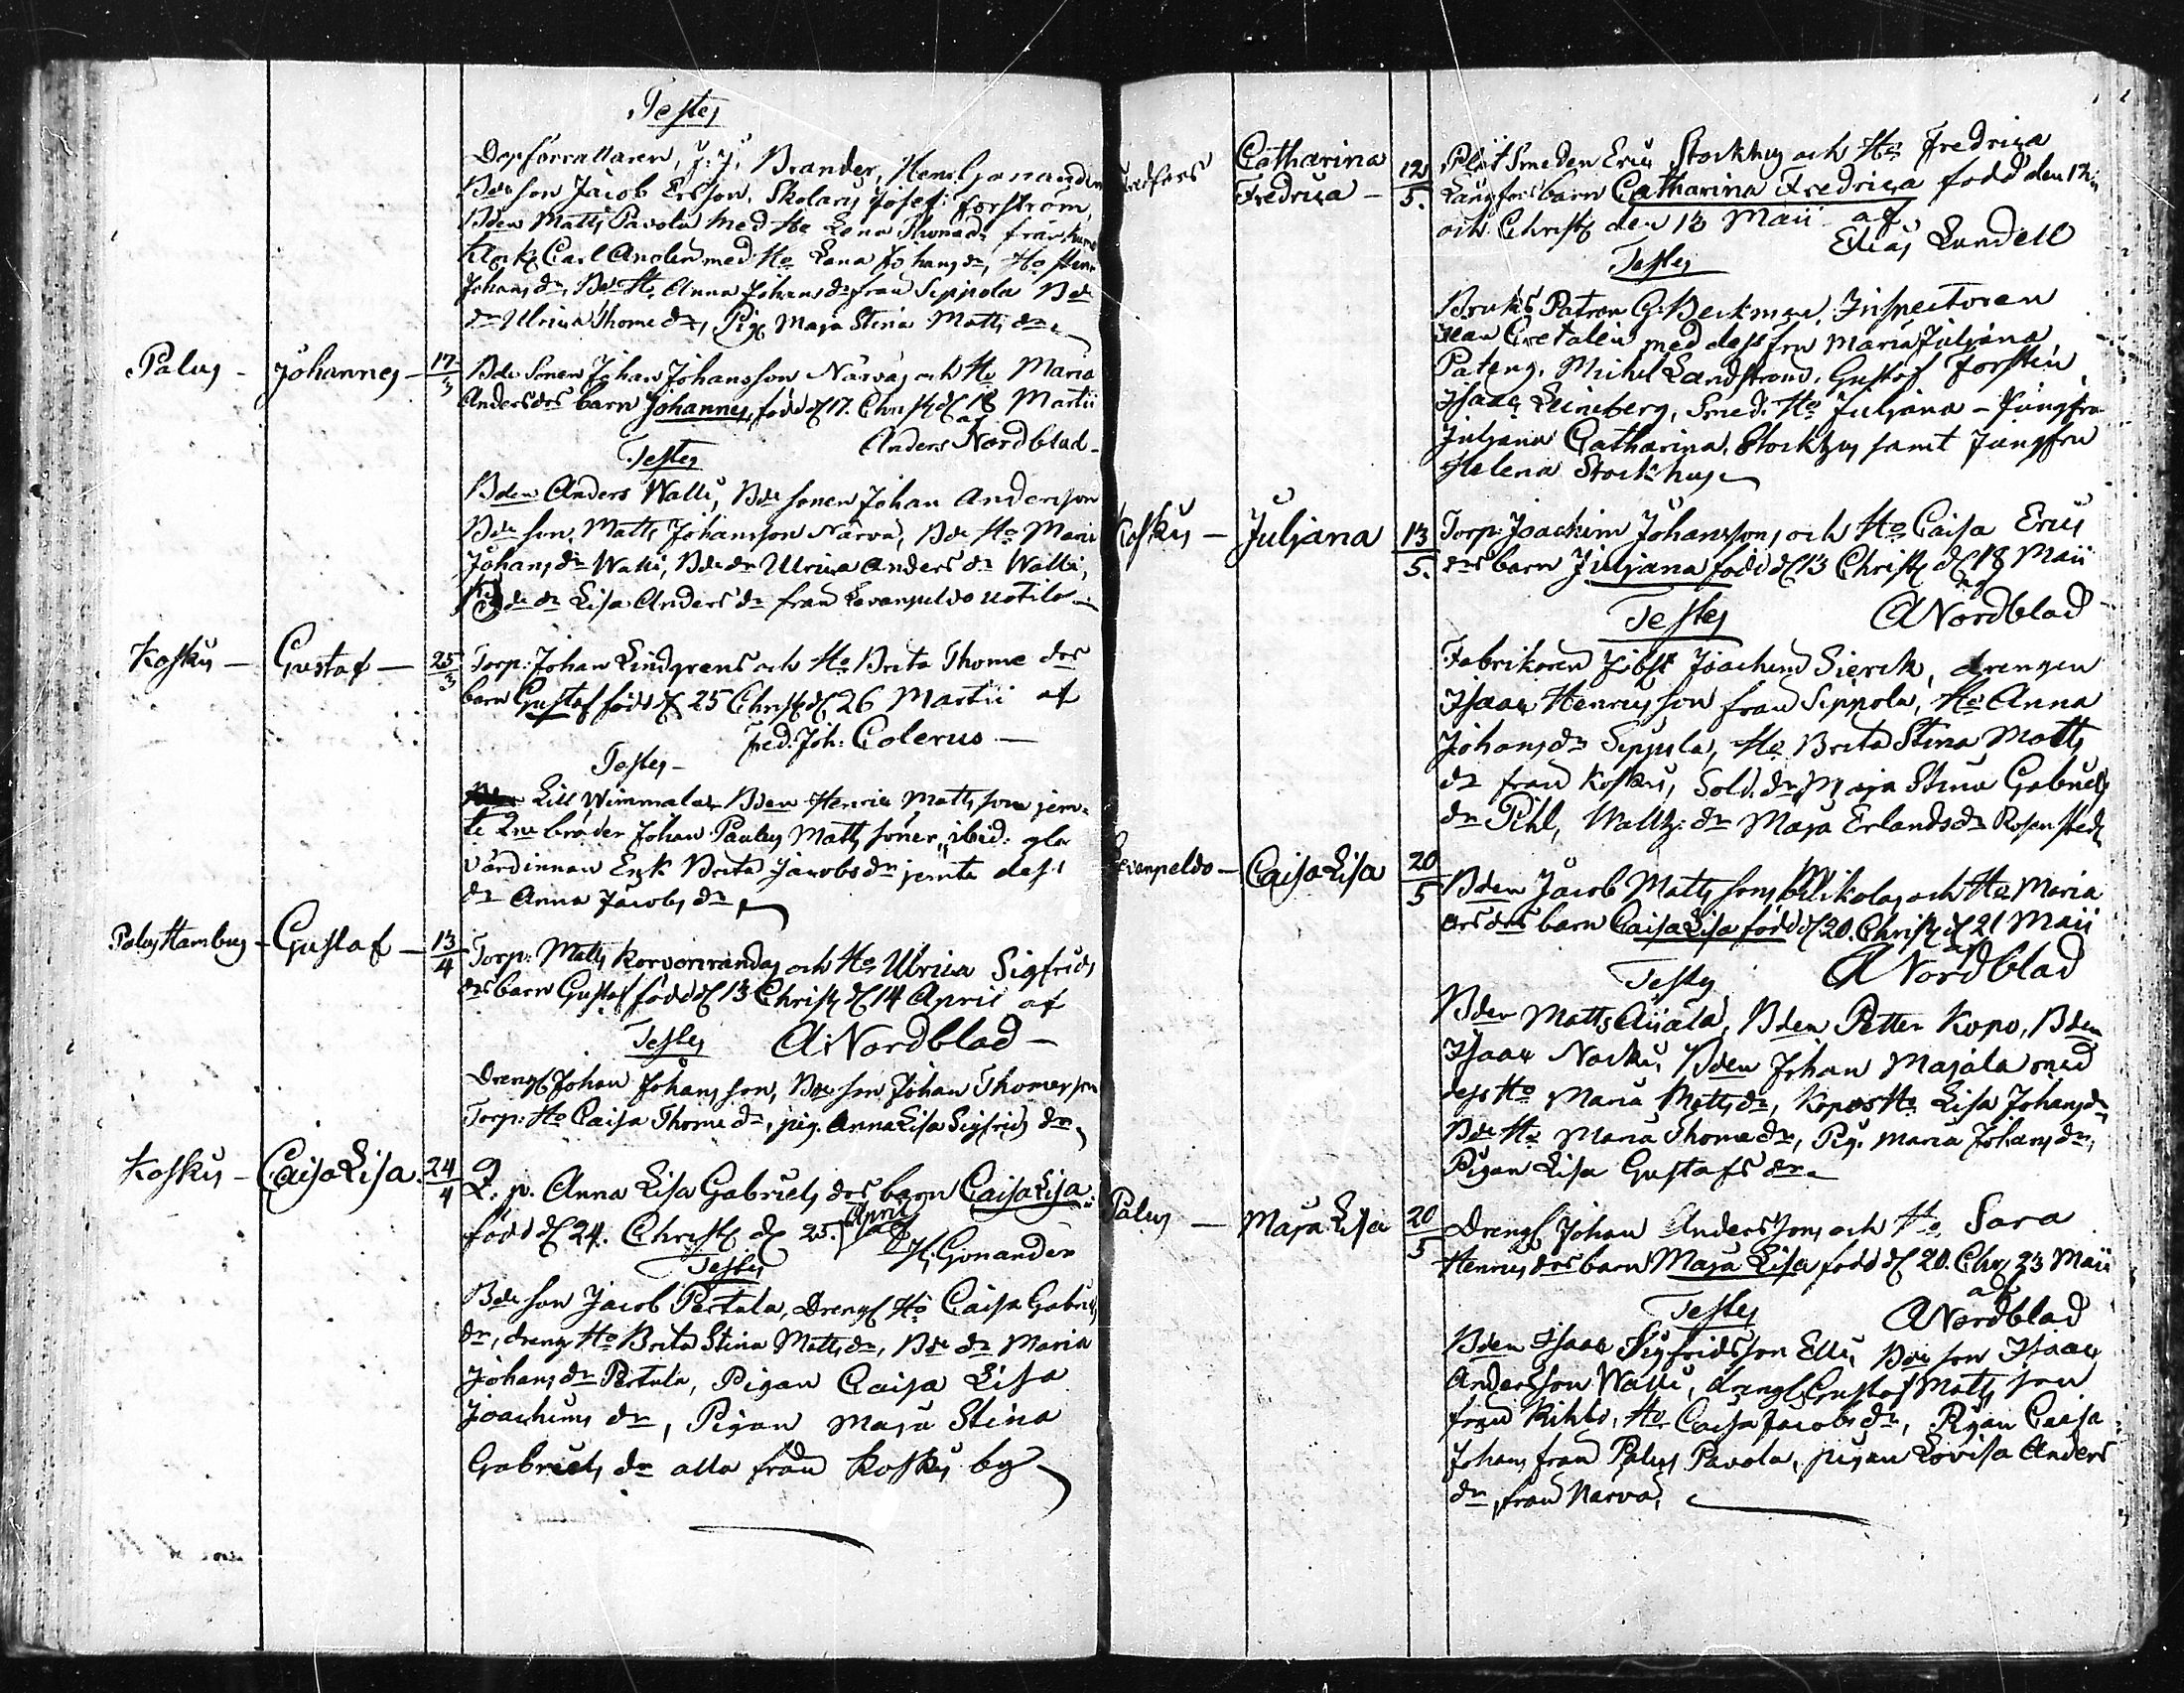 Testes
Dopförrättaren, J: J: Brander, Henr. Gonander
Bde son Jacob Ersson, Skolary Josef: Forström,
Bden Matts Pavola med Ho Lena Thomedr från
Klock Carl Anolin med Ho Lena Johansdr, Ho
Johansdr, Bde Ho Anna Johansdr från Sippola Bde
dr Ulrica Thomedr, Pig. Maja Stina Mattsdr
Palus - Johannes - 17/3 Bde Sonen Johan Johansson Närväs och Ho Maria
Andersdrs barn Johannes, född d 17. Christ d 18 Martii
af
Anders Nordblad -
Testes
Bden Anders Walli, Bde sonen Johan Andersson
Bde son, Matts Johansson Närvä, Bde Ho Maria
Johansdr Walli, Bde dr Ulrica Andersdr Walli,
Bde dr Lisa Andersdr från
Koskis - Gustaf - 25/3 Torp: Johan Lindgrens och Ho Brita Thomedrs
barn Gustaf född d 25 Christ d 26 Martii af
Fred: Joh: Colerus -
Testes -
Lill Wimmalas Bden Henric Mattsson jem-
te 2ne bröder Johan Paulus Matts söner, ibid: gla
värdinnan Enk Brita Jacobsdr jemte dess
dr Anna Jacobsdr
Palus Hambus - Gustaf - 13/4 Torp: Matts Korvonrandas och Ho Ulrica Sigfrids
drs barn Gustaf född d 13 Christ d 14 April af
Testes A: Nordblad -
Dreng Johan Johansson, Bde son Johan Thomesson
Torp: Ho Caisa Thomedr, pig. Anna Lisa Sigfridsdr
Koskis - Caisa Lisa. 24/4 Q. p. Anna Lisa Gabrielsdrs barn Caisa Lisa
född d 24. Christ d 25. April af
H. Gonander
Testes
Bde son Jacob Pertula, Dreng Ho Caisa Gabriels
dr, dreng Ho Brita Stina Mattsdr, Bde dr Maria
Johansdr Pertula, Pigan Caisa Lisa
Joachims dr, Pigan Maja Stina
Gabriels dr alla från Koskis by
Catharina Fredrica - 12/5. Plåt Smeden Eric Stockhus och Ho Fredrica
Långfors barn Catharina Fredrica född den 12
och Christ den 13 Maii af
Elias Lundell
Testes
Bruks Patron G: Beckman, Inspectoren
Jean Cretalin med dess fru Maria Juliana,
Michel Landström, Gustaf Forstén
Isaac Leineberg, Smed. Ho Juliana - Jungfru
Juliana Catharina Stockhus samt Jungfru
Helena Stockhus
Koskis - Juljana 13/5. Torp: Joachim Johanssons och Ho Caisa Erics
drs barn Juljana född d 13 Christ d 18 Maii
af
Testes A Nordblad
Fabrikoren Jobst Joachim Sierck, drengen
Isaac Henricsson från Sippola, Ho Anna
Johansdr Sippola, Ho Brita Stina Matts
dr från Koskis, Sold. dr Maja Stina Gabriels
dr Pihl, Waltz: dr Maja Erlandsdr Rosenstedt
Caisa Lisa 20/5 Bden Jacob Mattssons Mikolas och Ho Maria
ersdrs barn Caisa Lisa född d 20. Christ d 21 Maii
af
Testes A Nordblad
Bden Matts Äijälä, Bden Petter Kopo, Bden
Isaac Nocku, Bden Johan Majala med
dess Ho Maria Mattsdr, Kopos Ho Lisa Johansdr
Bde Ho Maria Thomedr, Pig. Maria Johansdr,
Pigan Lisa Gustafsdr
Palus - Maja Lisa 20/5 Dreng Johan Anderssons och Ho Sara
Henricsdrs barn Maja Lisa född d 20. Chr 23 Maii
af
Testes A Nordblad
Bden Isaac Sigfridsson Elli, Bde son Isaac
Andersson Walli, dreng Gustaf Mattsson
från Kihlo, Ho Caisa Jacobsdr, Pigan Caisa
Johans från Palus Pavola, pigan Lovisa Anders
dr, från Narva,